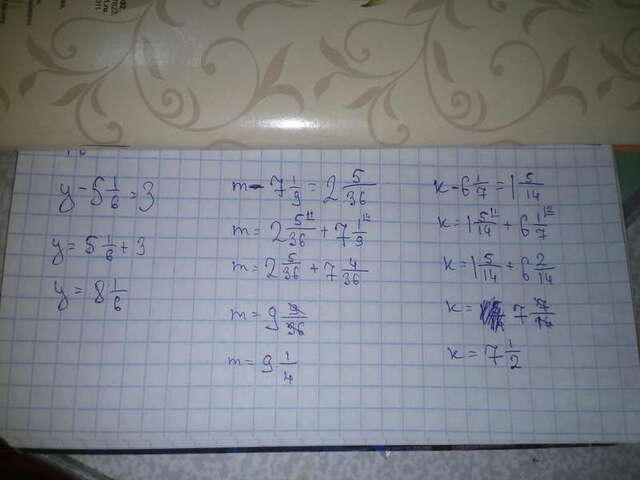 y - 5 1/6 = 3
y = 5 1/6 + 3
y = 8 1/6
m - 7 1/9 = 2 5/36
m = 2 5/36 + 7 1/9
m = 2 5/36 + 7 4/36
m = 9 9/36
m = 9 1/4
k - 6 1/7 = 1 5/14
k = 1 5/14 + 6 1/7
k = 1 5/14 + 6 2/14
k = 7 7/14
k = 7 1/2